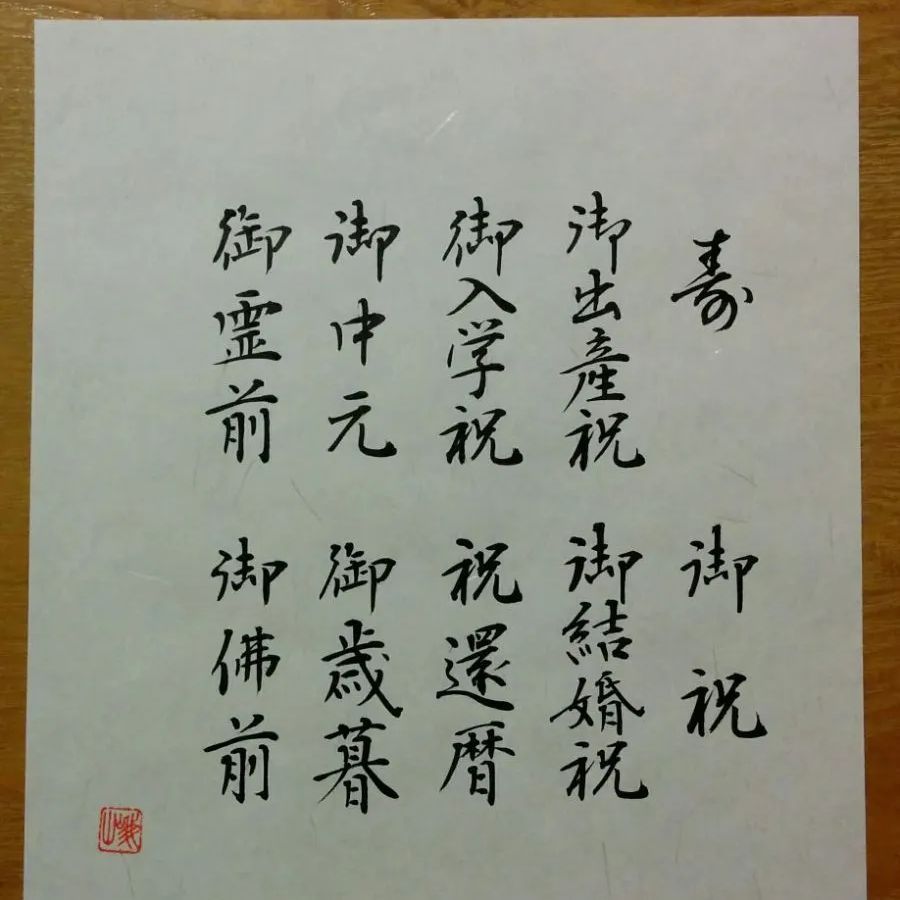 寿
御祝
御出産祝
御結婚祝
御入学祝
祝還暦
御中元
御歳暮
御霊前
御佛前